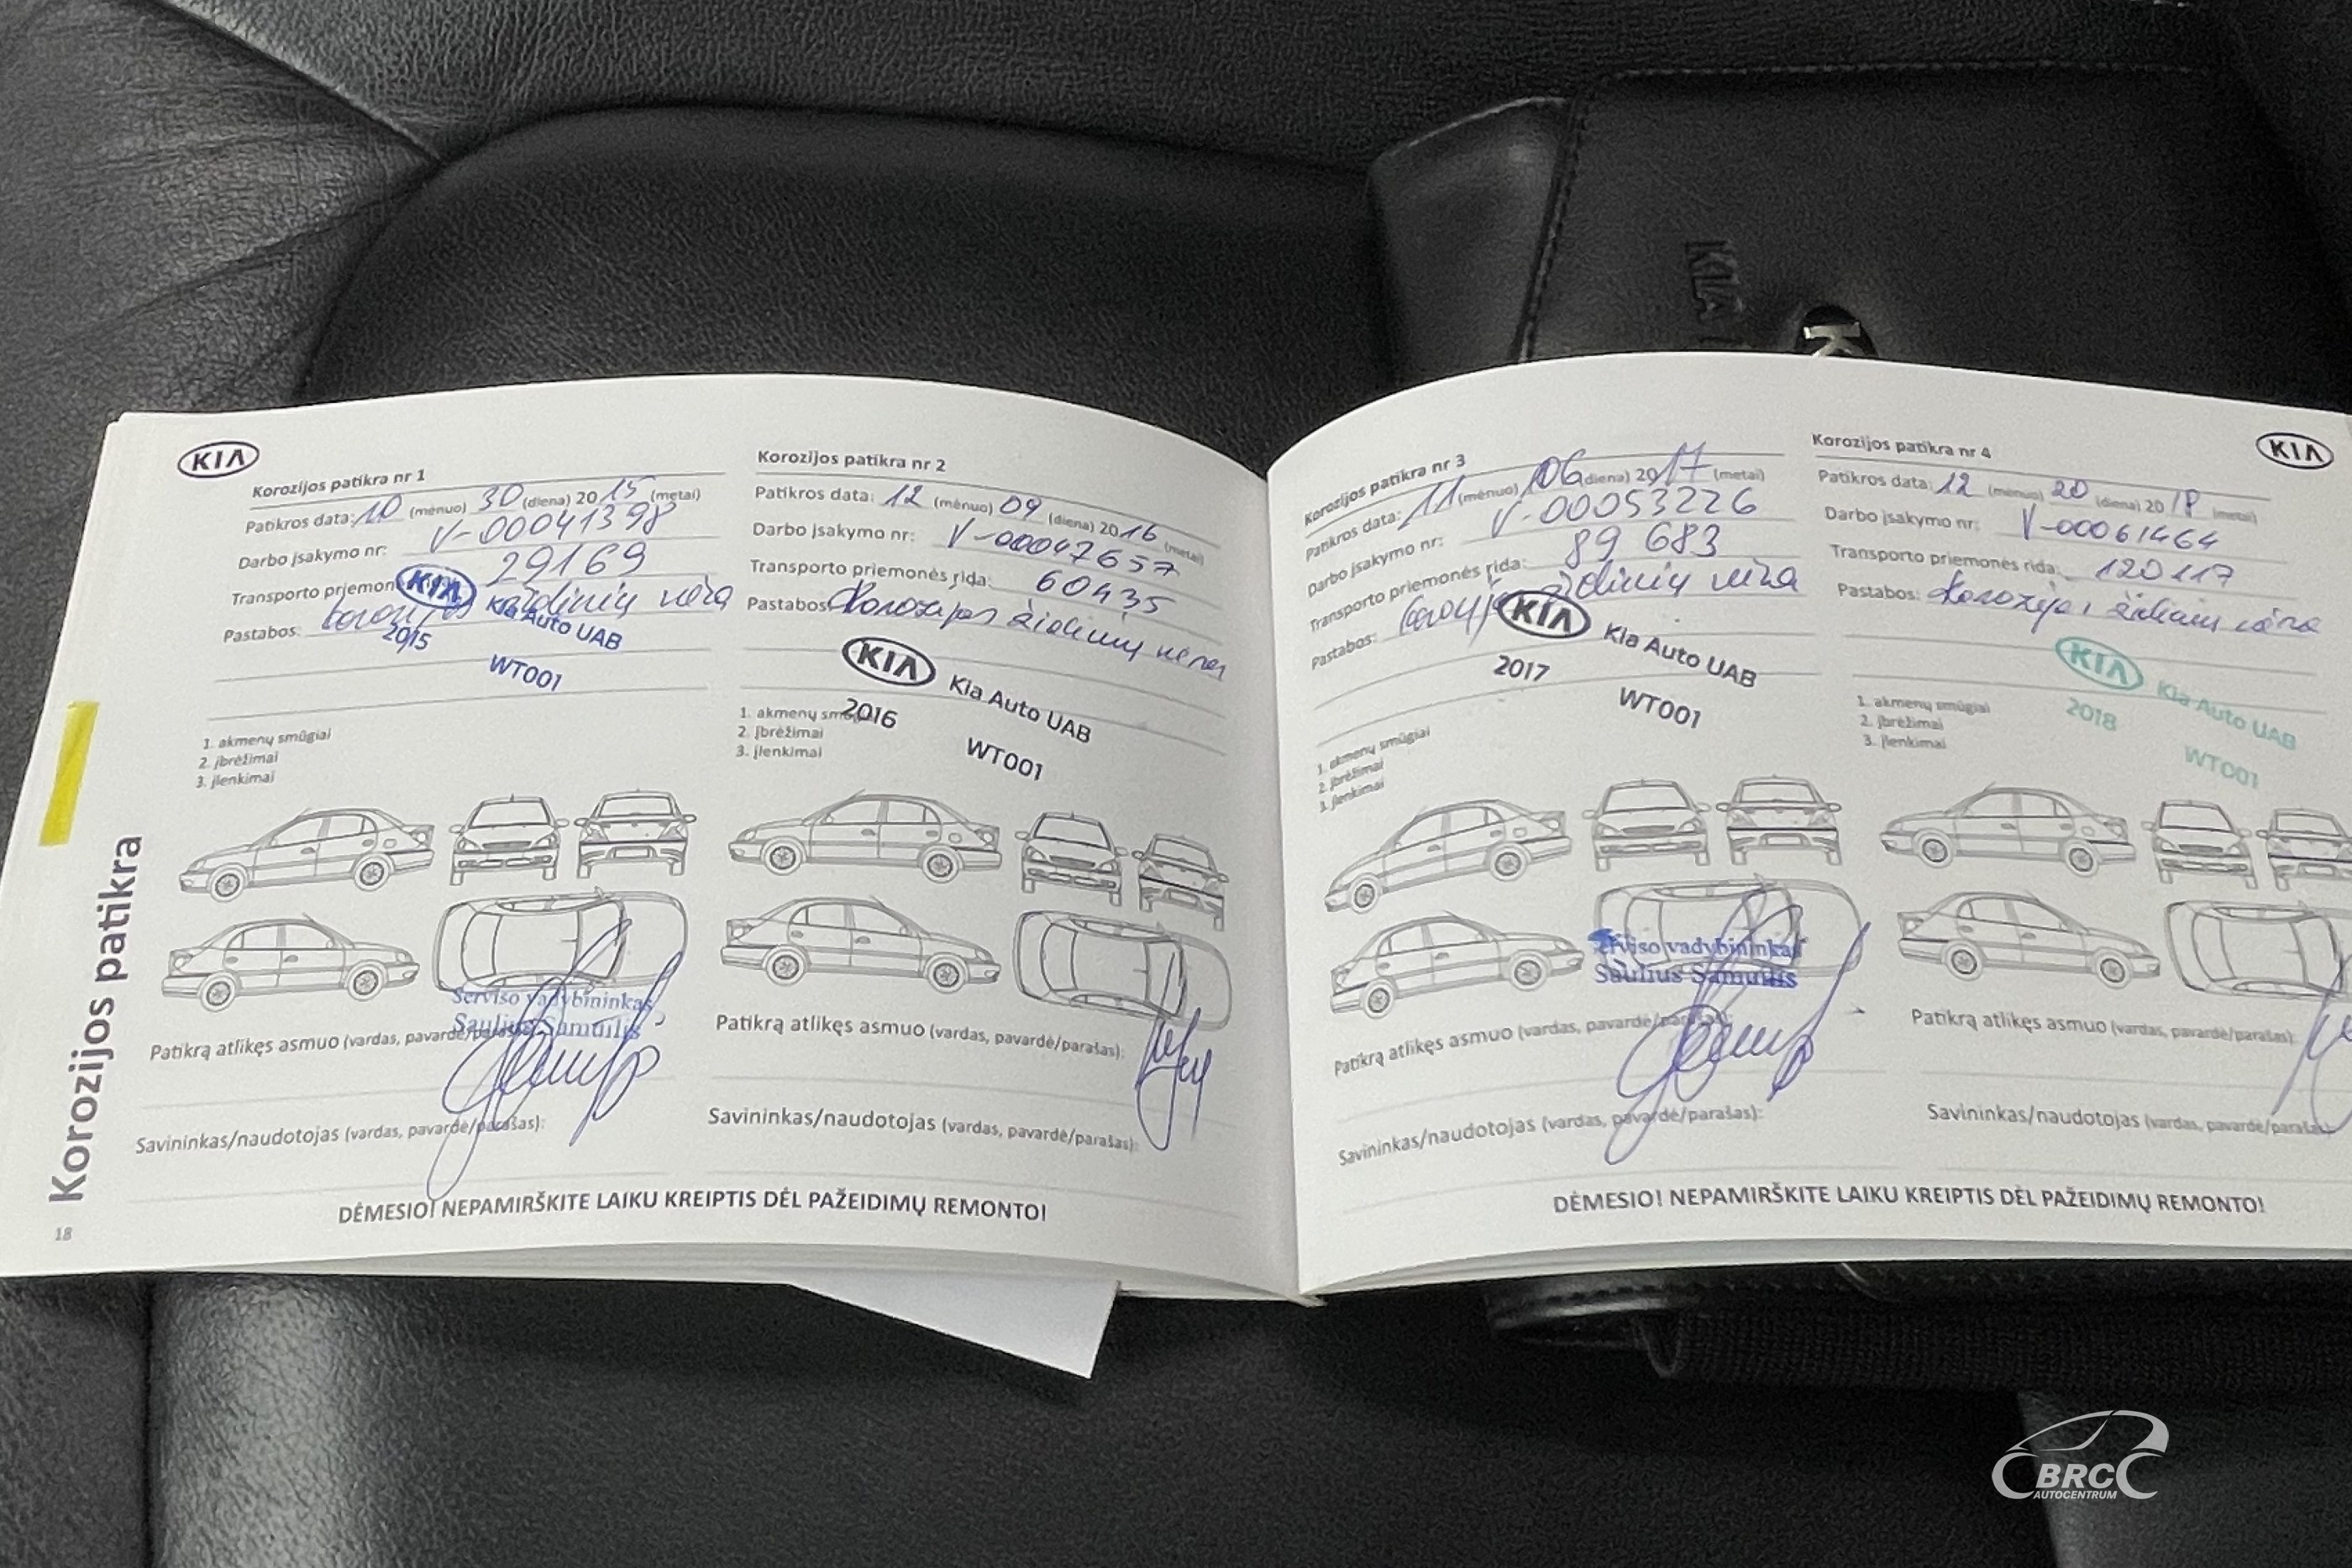 KIA
Korozijos patikra nr 1
Patikros data: 10 (mėnuo) 30 (diena) 2015 (metai)
Darbo įsakymo nr: V-00041398
Transporto priemon 29169
Pastabos: židinių nėra
KIA
2015 Kia Auto UAB
WT001
1. akmenų smūgiai
2. įbrėžimai
3. įlenkimai
Serviso vadybininkas
Saulius Samuilis
Patikrą atlikęs asmuo (vardas, pavardė/parašas):
Savininkas/naudotojas (vardas, pavardė/parašas):
Korozijos patikra nr 2
Patikros data: 12 (mėnuo) 09 (diena) 2016 (metai)
Darbo įsakymo nr: V-00047657
Transporto priemonės rida: 60435
Pastabos: Korozijos židinių nėra
KIA Kia Auto UAB
2016 WT001
1. akmenų smūgiai
2. įbrėžimai
3. įlenkimai
Patikrą atlikęs asmuo (vardas, pavardė/parašas):
Savininkas/naudotojas (vardas, pavardė/parašas):
DĖMESIO! NEPAMIRŠKITE LAIKU KREIPTIS DĖL PAŽEIDIMŲ REMONTO!
Korozijos patikra
18
Korozijos patikra nr 3
Patikros data: 11 (mėnuo) 06 (diena) 2017 (metai)
Darbo įsakymo nr: V-00053226
Transporto priemonės rida: 89 683
Pastabos: židinių nėra
KIA Kia Auto UAB
2017 WT001
1. akmenų smūgiai
2. įbrėžimai
3. įlenkimai
Serviso vadybininkas
Saulius Samuilis
Patikrą atlikęs asmuo (vardas, pavardė/parašas):
Savininkas/naudotojas (vardas, pavardė/parašas):
KIA
Korozijos patikra nr 4
Patikros data: 12 (mėnuo) 20 (diena) 2018 (metai)
Darbo įsakymo nr: V-00061464
Transporto priemonės rida: 120117
Pastabos: Korozijos židinių nėra
KIA Kia Auto UAB
2018 WT001
1. akmenų smūgiai
2. įbrėžimai
3. įlenkimai
Patikrą atlikęs asmuo (vardas, pavardė/parašas):
Savininkas/naudotojas (vardas, pavardė/parašas):
DĖMESIO! NEPAMIRŠKITE LAIKU KREIPTIS DĖL PAŽEIDIMŲ REMONTO!
KIA
BRC
AUTOCENTRUM